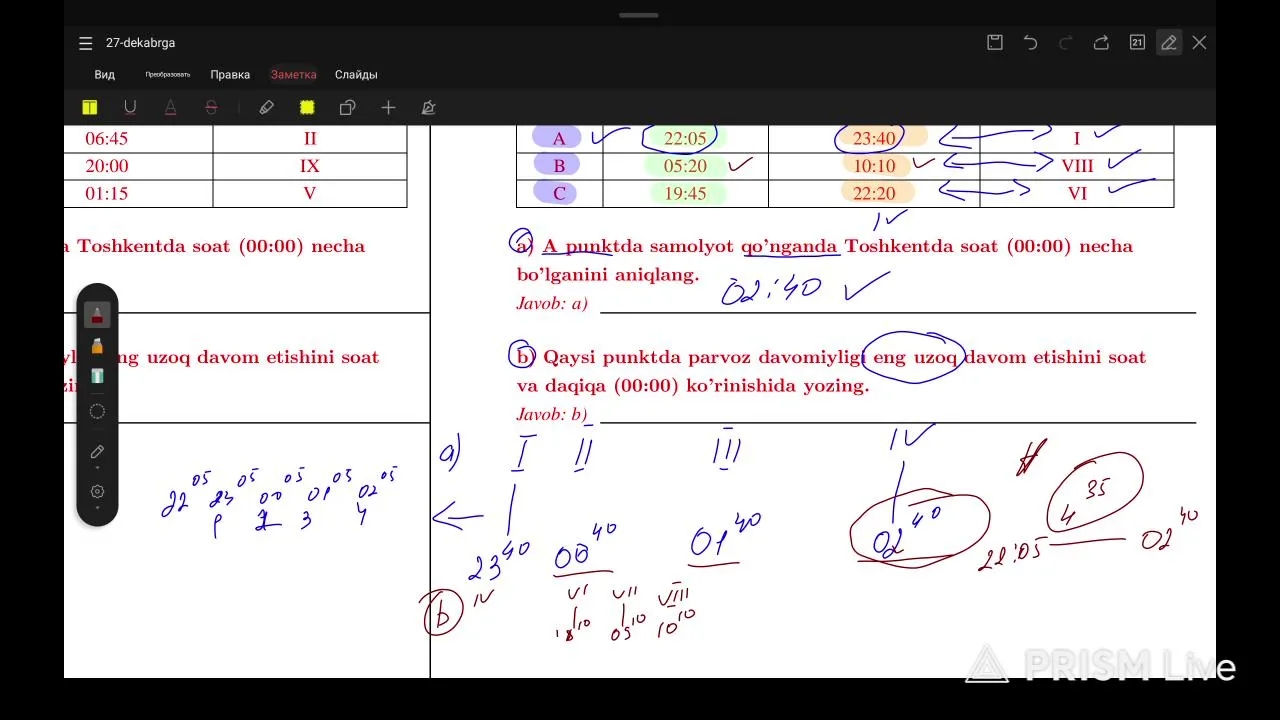 27-dekabrga
21
Вид Преобразовать Правка Заметка Слайды
T U A S
06:45 II
20:00 IX
01:15 V
a Toshkentda soat (00:00) necha
eng uzoq davom etishini soat
A 22:05 23:40 I
B 05:20 10:10 VIII
C 19:45 22:20 VI
IV
a) A punktda samolyot qo'nganda Toshkentda soat (00:00) necha
bo'lganini aniqlang.
02:40
Javob: a)
b) Qaysi punktda parvoz davomiyligi eng uzoq davom etishini soat
va daqiqa (00:00) ko'rinishida yozing.
Javob: b)
a) I II III IV
23 40 00 40 01 40 02 40
22 05 23 05 00 05 01 05 02 05
3 4
4 35
22:05 02 40
b IV VI VII VIII
10 09 10 10 10
PRISM Live